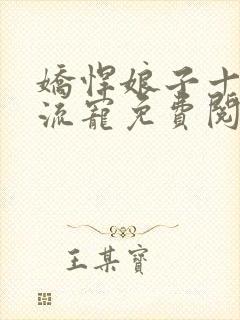 嬌悍娘子十
流寵免費閱
王某寶